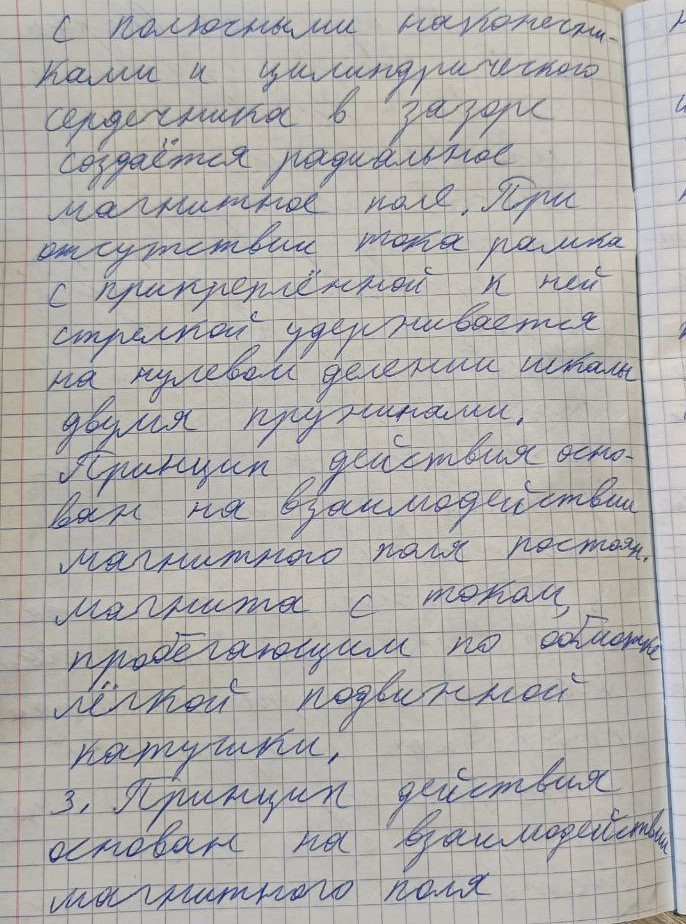 с полюсными наконечни-
ками и цилиндрического
сердечника в зазоре
создаётся радиальное
магнитное поле. При
отсутствии тока рамка
с прикреплённой к ней
стрелкой удерживается
на нулевом делении шкалы
двумя пружинами.
Принцип действия осно-
ван на взаимодействии
магнитного поля постоян.
магнита с током,
пробегающим по обмотке
лёгкой подвижной
катушки.
3. Принцип действия
основан на взаимодействии
магнитного поля